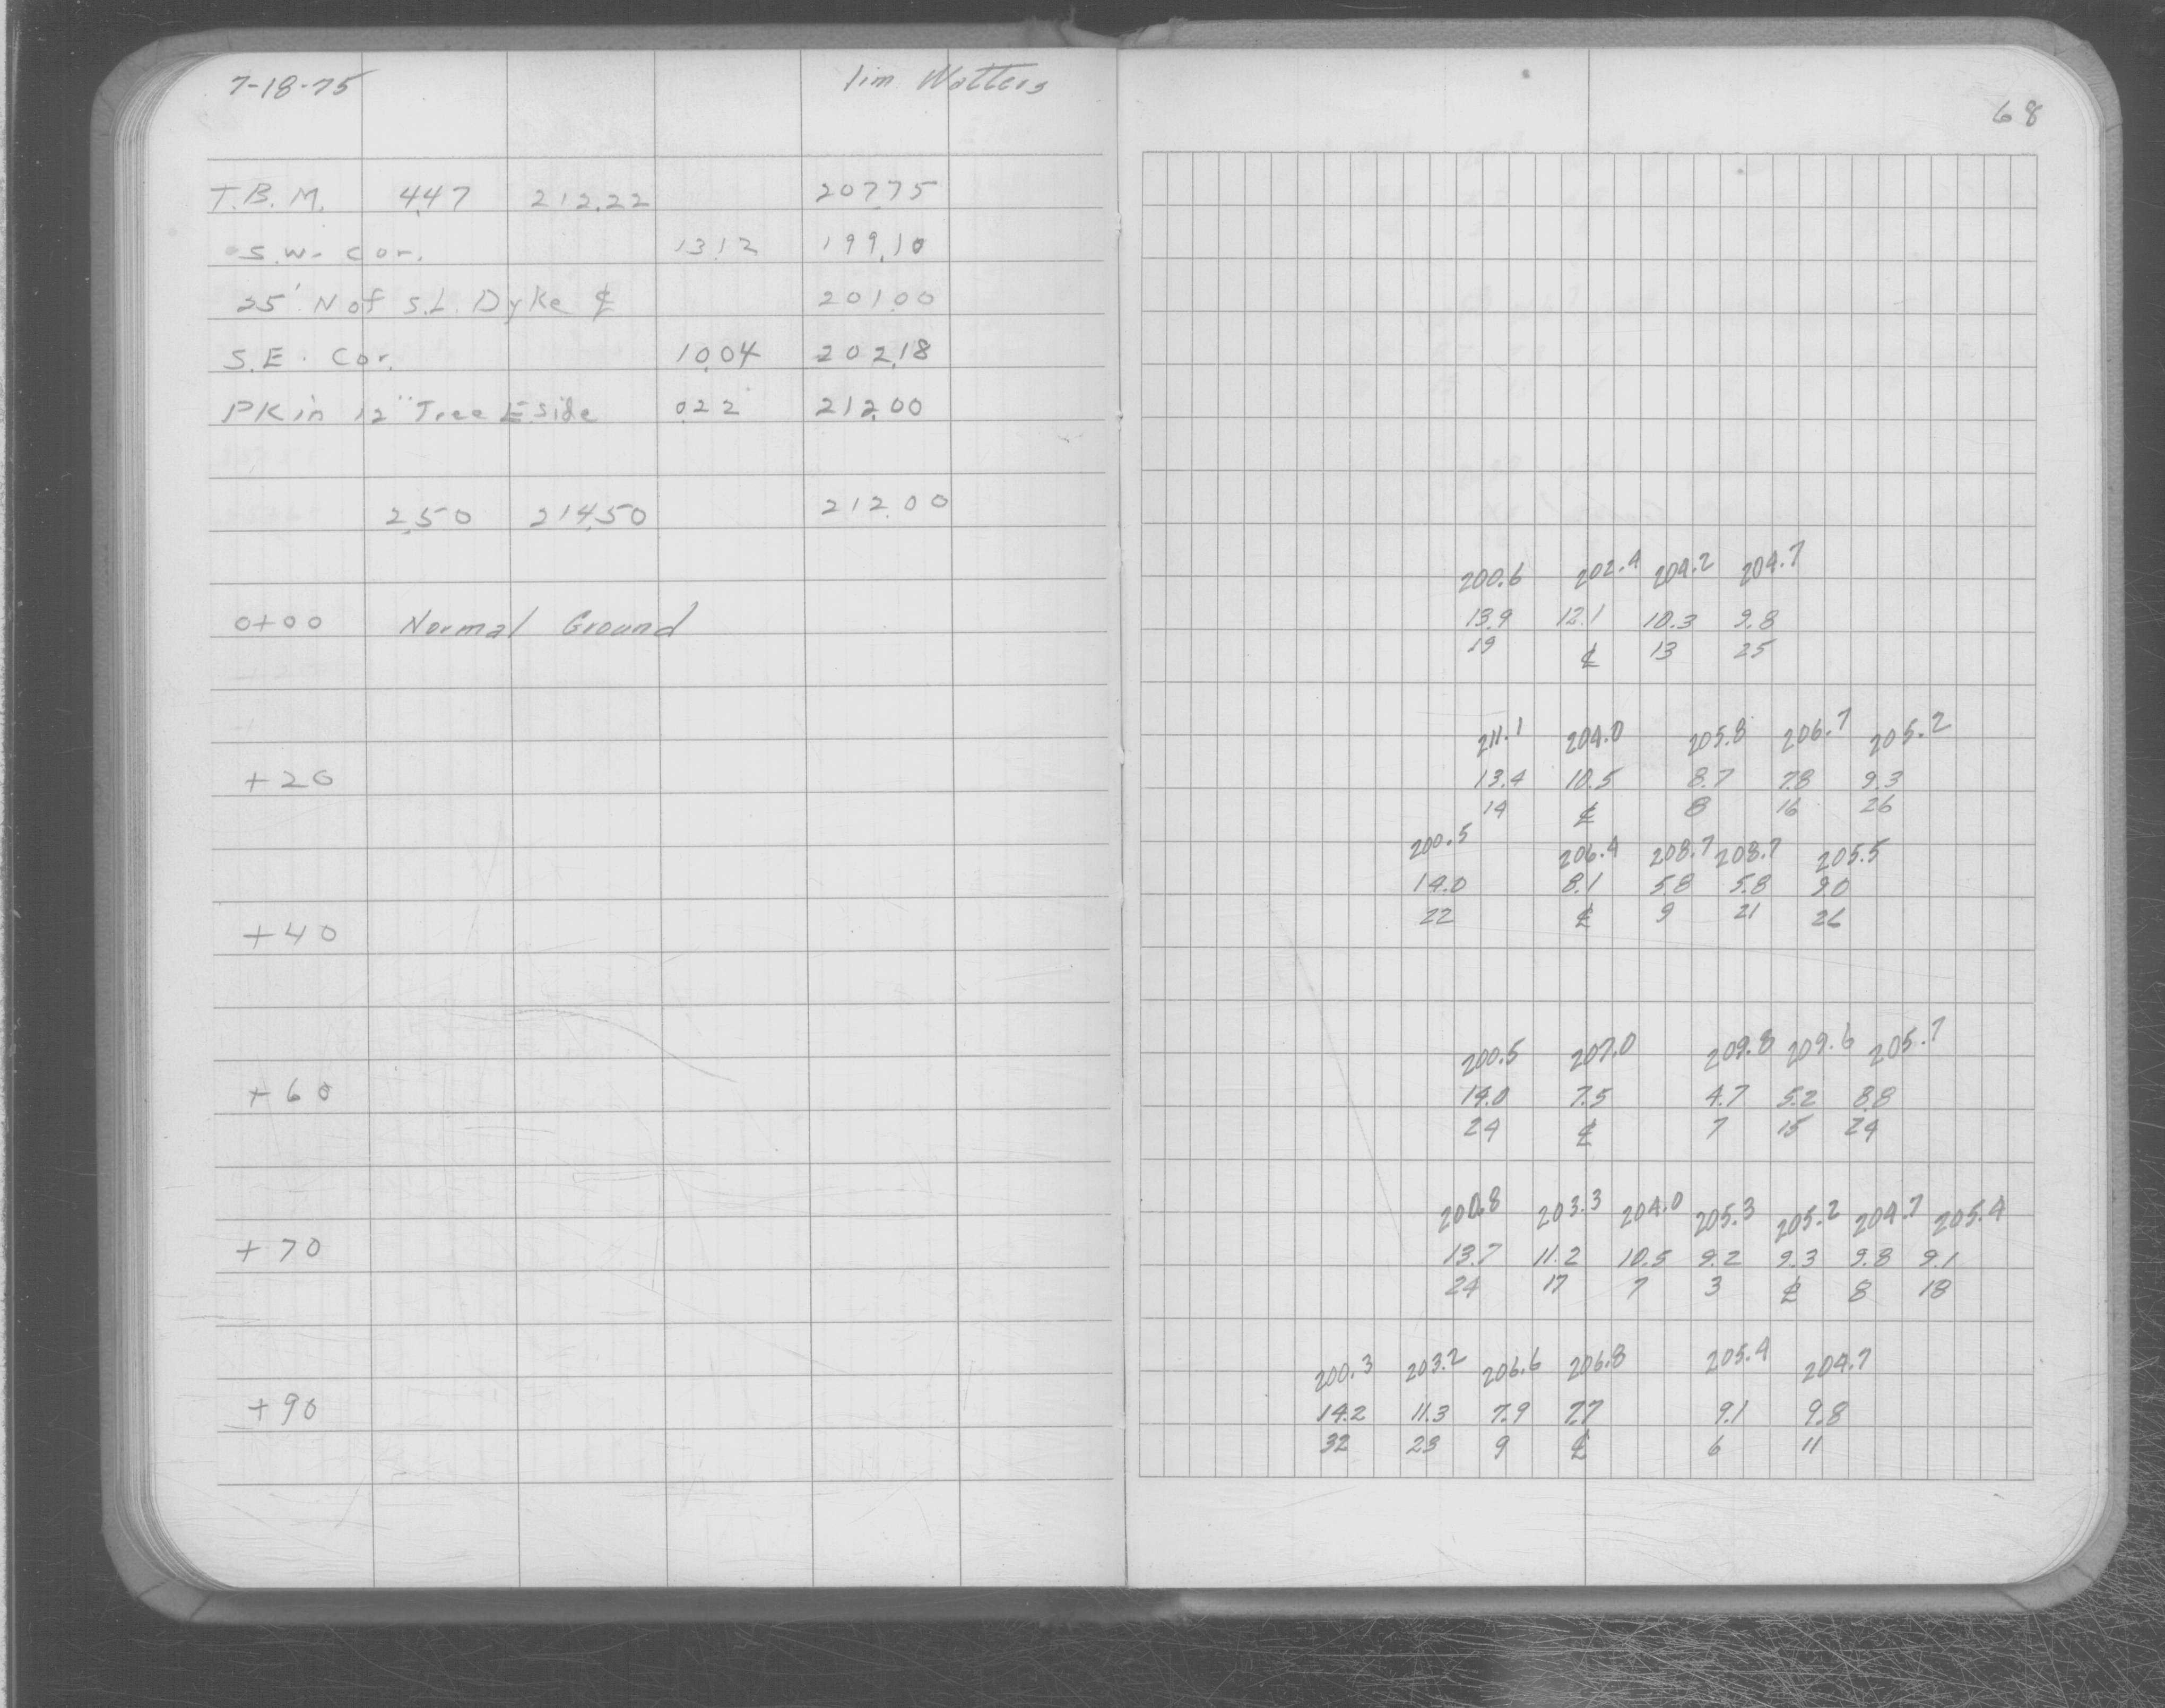 7-18-75 Jim Watters
T.B.M. 4.47 212.22 207.75
S.W. Cor. 13.12 199.10
25' N of S.L. Dyke ℄ 201.00
S.E. Cor. 10.04 202.18
PK in 12" Tree E. side 0.22 212.00
2.50 214.50 212.00
0+00 Normal Ground
+20
+40
+60
+70
+90
68
200.6 202.4 204.2 204.7
13.9 12.1 10.3 9.8
19 ℄ 13 25
211.1 204.0 205.8 206.7 205.2
13.4 10.5 8.7 7.8 9.3
14 ℄ 8 16 26
200.5 206.4 208.7 208.7 205.5
14.0 8.1 5.8 5.8 9.0
22 ℄ 9 21 26
200.5 207.0 209.8 209.6 205.7
14.0 7.5 4.7 5.2 8.8
24 ℄ 7 15 24
200.8 203.3 204.0 205.3 205.2 204.7 205.4
13.7 11.2 10.5 9.2 9.3 9.8 9.1
24 17 7 3 ℄ 8 18
200.3 203.2 206.6 206.8 205.4 204.7
14.2 11.3 7.9 7.7 9.1 9.8
32 23 9 ℄ 6 11